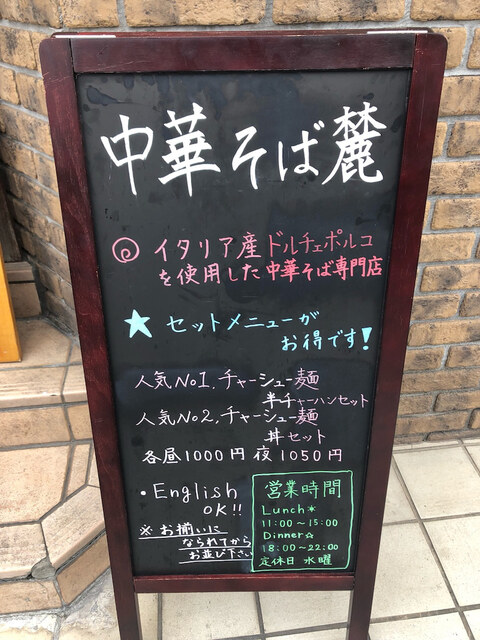 中華そば麓
イタリア産ドルチェポルコ
を使用した中華そば専門店
★ セットメニューが
お得です!
人気No1.チャーシュー麺
半チャーハンセット
人気No2.チャーシュー麺
丼セット
各昼1000円 夜1050円
・English
OK!!
※お揃いに
なられてから
お並び下さい
営業時間
Lunch*
11:00～15:00
Dinner☆
18:00～22:00
定休日 水曜